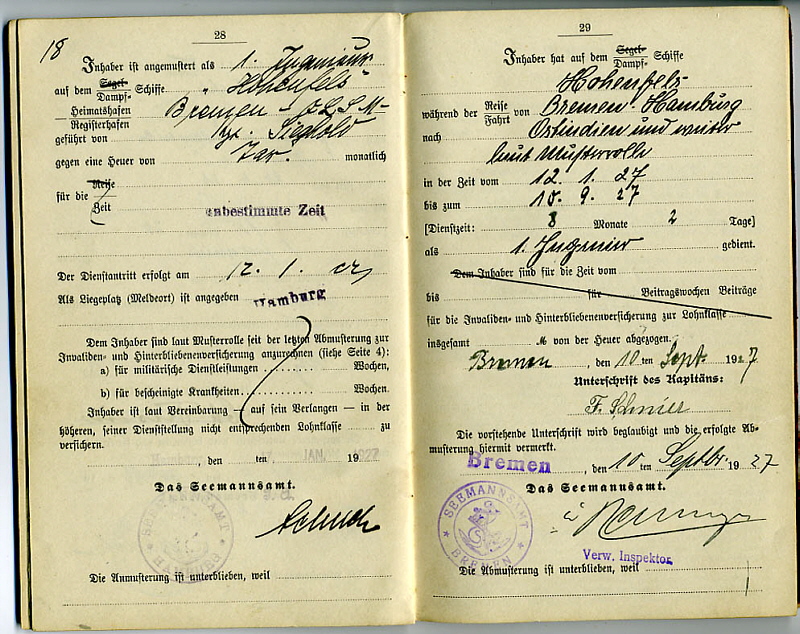 18
28
Inhaber ist angemustert als 1. Ingenieur
auf dem Segel- Dampf- Schiffe „Hohenfels"
Heimatshafen Registerhafen Bremen
geführt von
gegen eine Heuer von monatlich
für die Reise Zeit unbestimmte Zeit
Der Dienstantritt erfolgt am 12. 1. cr,
Als Liegeplatz (Meldeort) ist angegeben Hamburg
Dem Inhaber sind laut Musterrolle seit der letzten Abmusterung zur
Invaliden- und Hinterbliebenenversicherung anzurechnen (siehe Seite 4):
a) für militärische Dienstleistungen Wochen,
b) für bescheinigte Krankheiten Wochen.
Inhaber ist laut Vereinbarung — auf sein Verlangen — in der
höheren, seiner Dienststellung nicht entsprechenden Lohnklasse zu
versichern.
, den ten JAN. 19 1927
Das Seemannsamt.
SEEMANNSAMT HAMBURG
Die Anmusterung ist unterblieben, weil
29
Inhaber hat auf dem Segel- Dampf- Schiffe
Hohenfels
während der Reise Fahrt von Bremen Hamburg
nach Ostindien und weiter
laut Musterrolle
in der Zeit vom 12. 1. 27
bis zum 10. 9. 27
[Dienstzeit: 8 Monate 2 Tage]
als 1. Ingenieur gedient.
Dem Inhaber sind für die Zeit vom
bis für Beitragswochen Beiträge
für die Invaliden- und Hinterbliebenenversicherung zur Lohnklasse
insgesamt ℳ von der Heuer abgezogen.
Bremen, den 10 ten Sept. 1927
Unterschrift des Kapitäns:
Die vorstehende Unterschrift wird beglaubigt und die erfolgte Ab-
musterung hiermit vermerkt.
Bremen, den 10 ten Septbr. 1927
Das Seemannsamt.
SEEMANNSAMT BREMEN
Verw. Inspektor.
Die Abmusterung ist unterblieben, weil